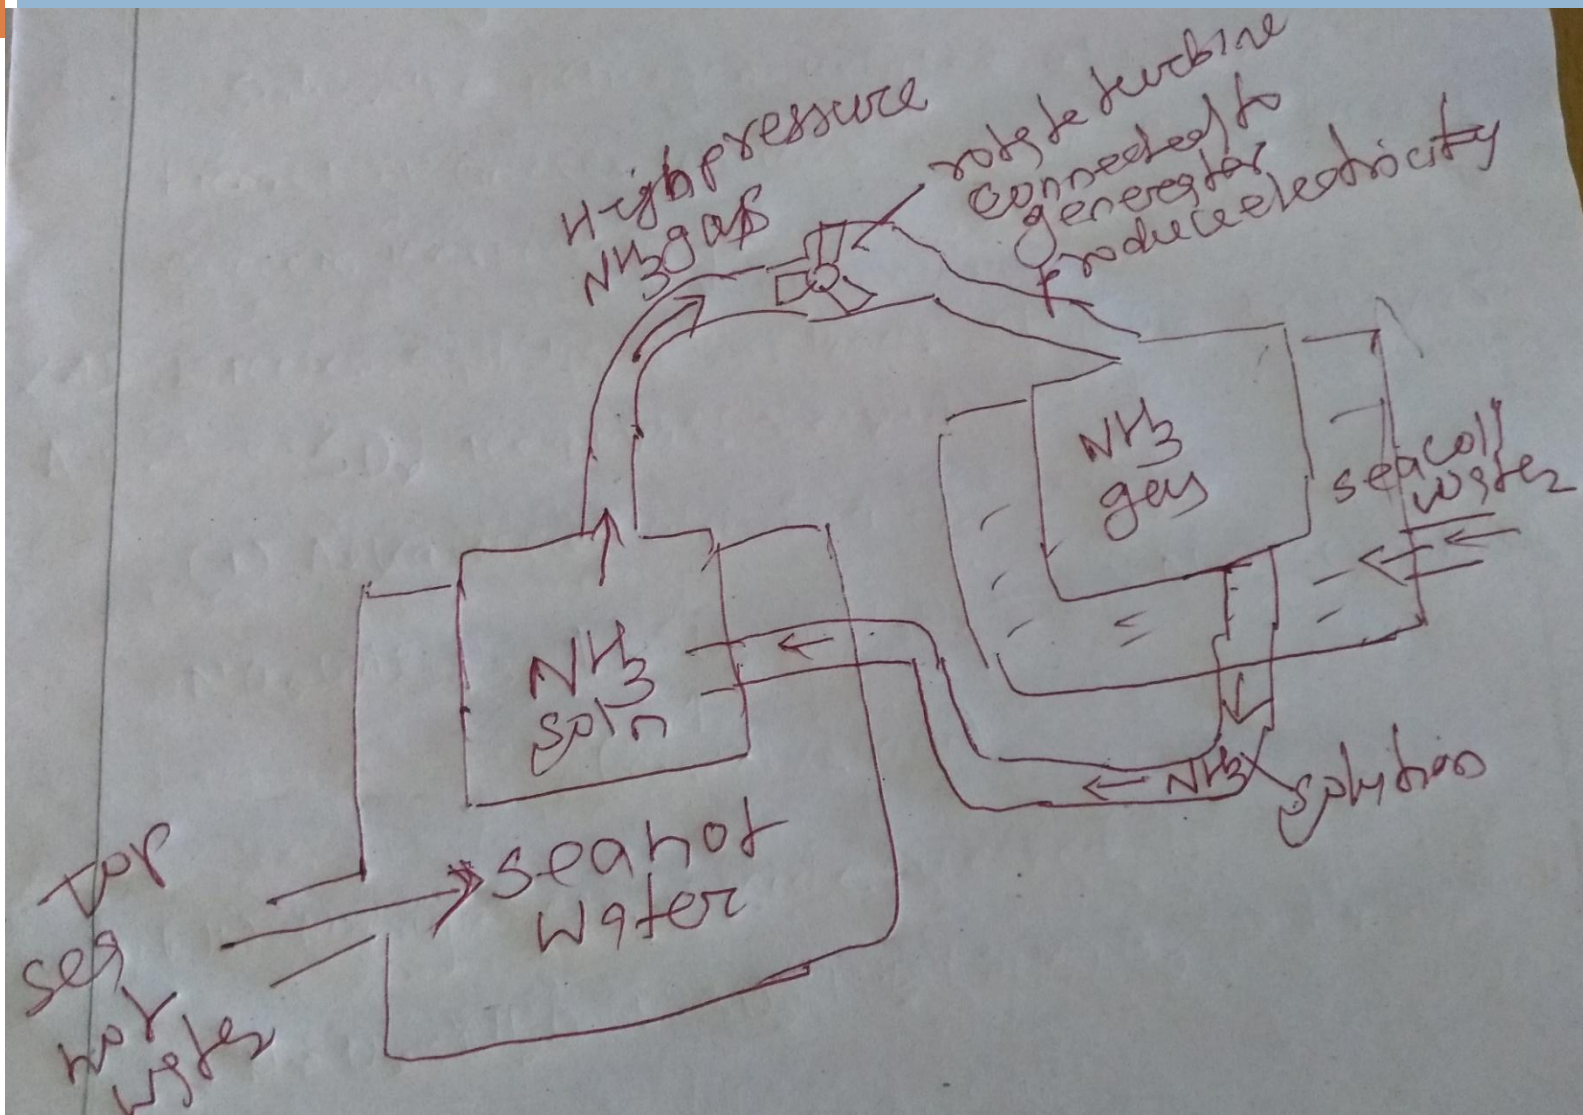 High pressure
NH3 gas
rotate turbine
connected to
generator
produce electricity
NH3
gas
sea cold
water
NH3
soln
NH3
solution
sea hot
water
Top
sea
hot
water